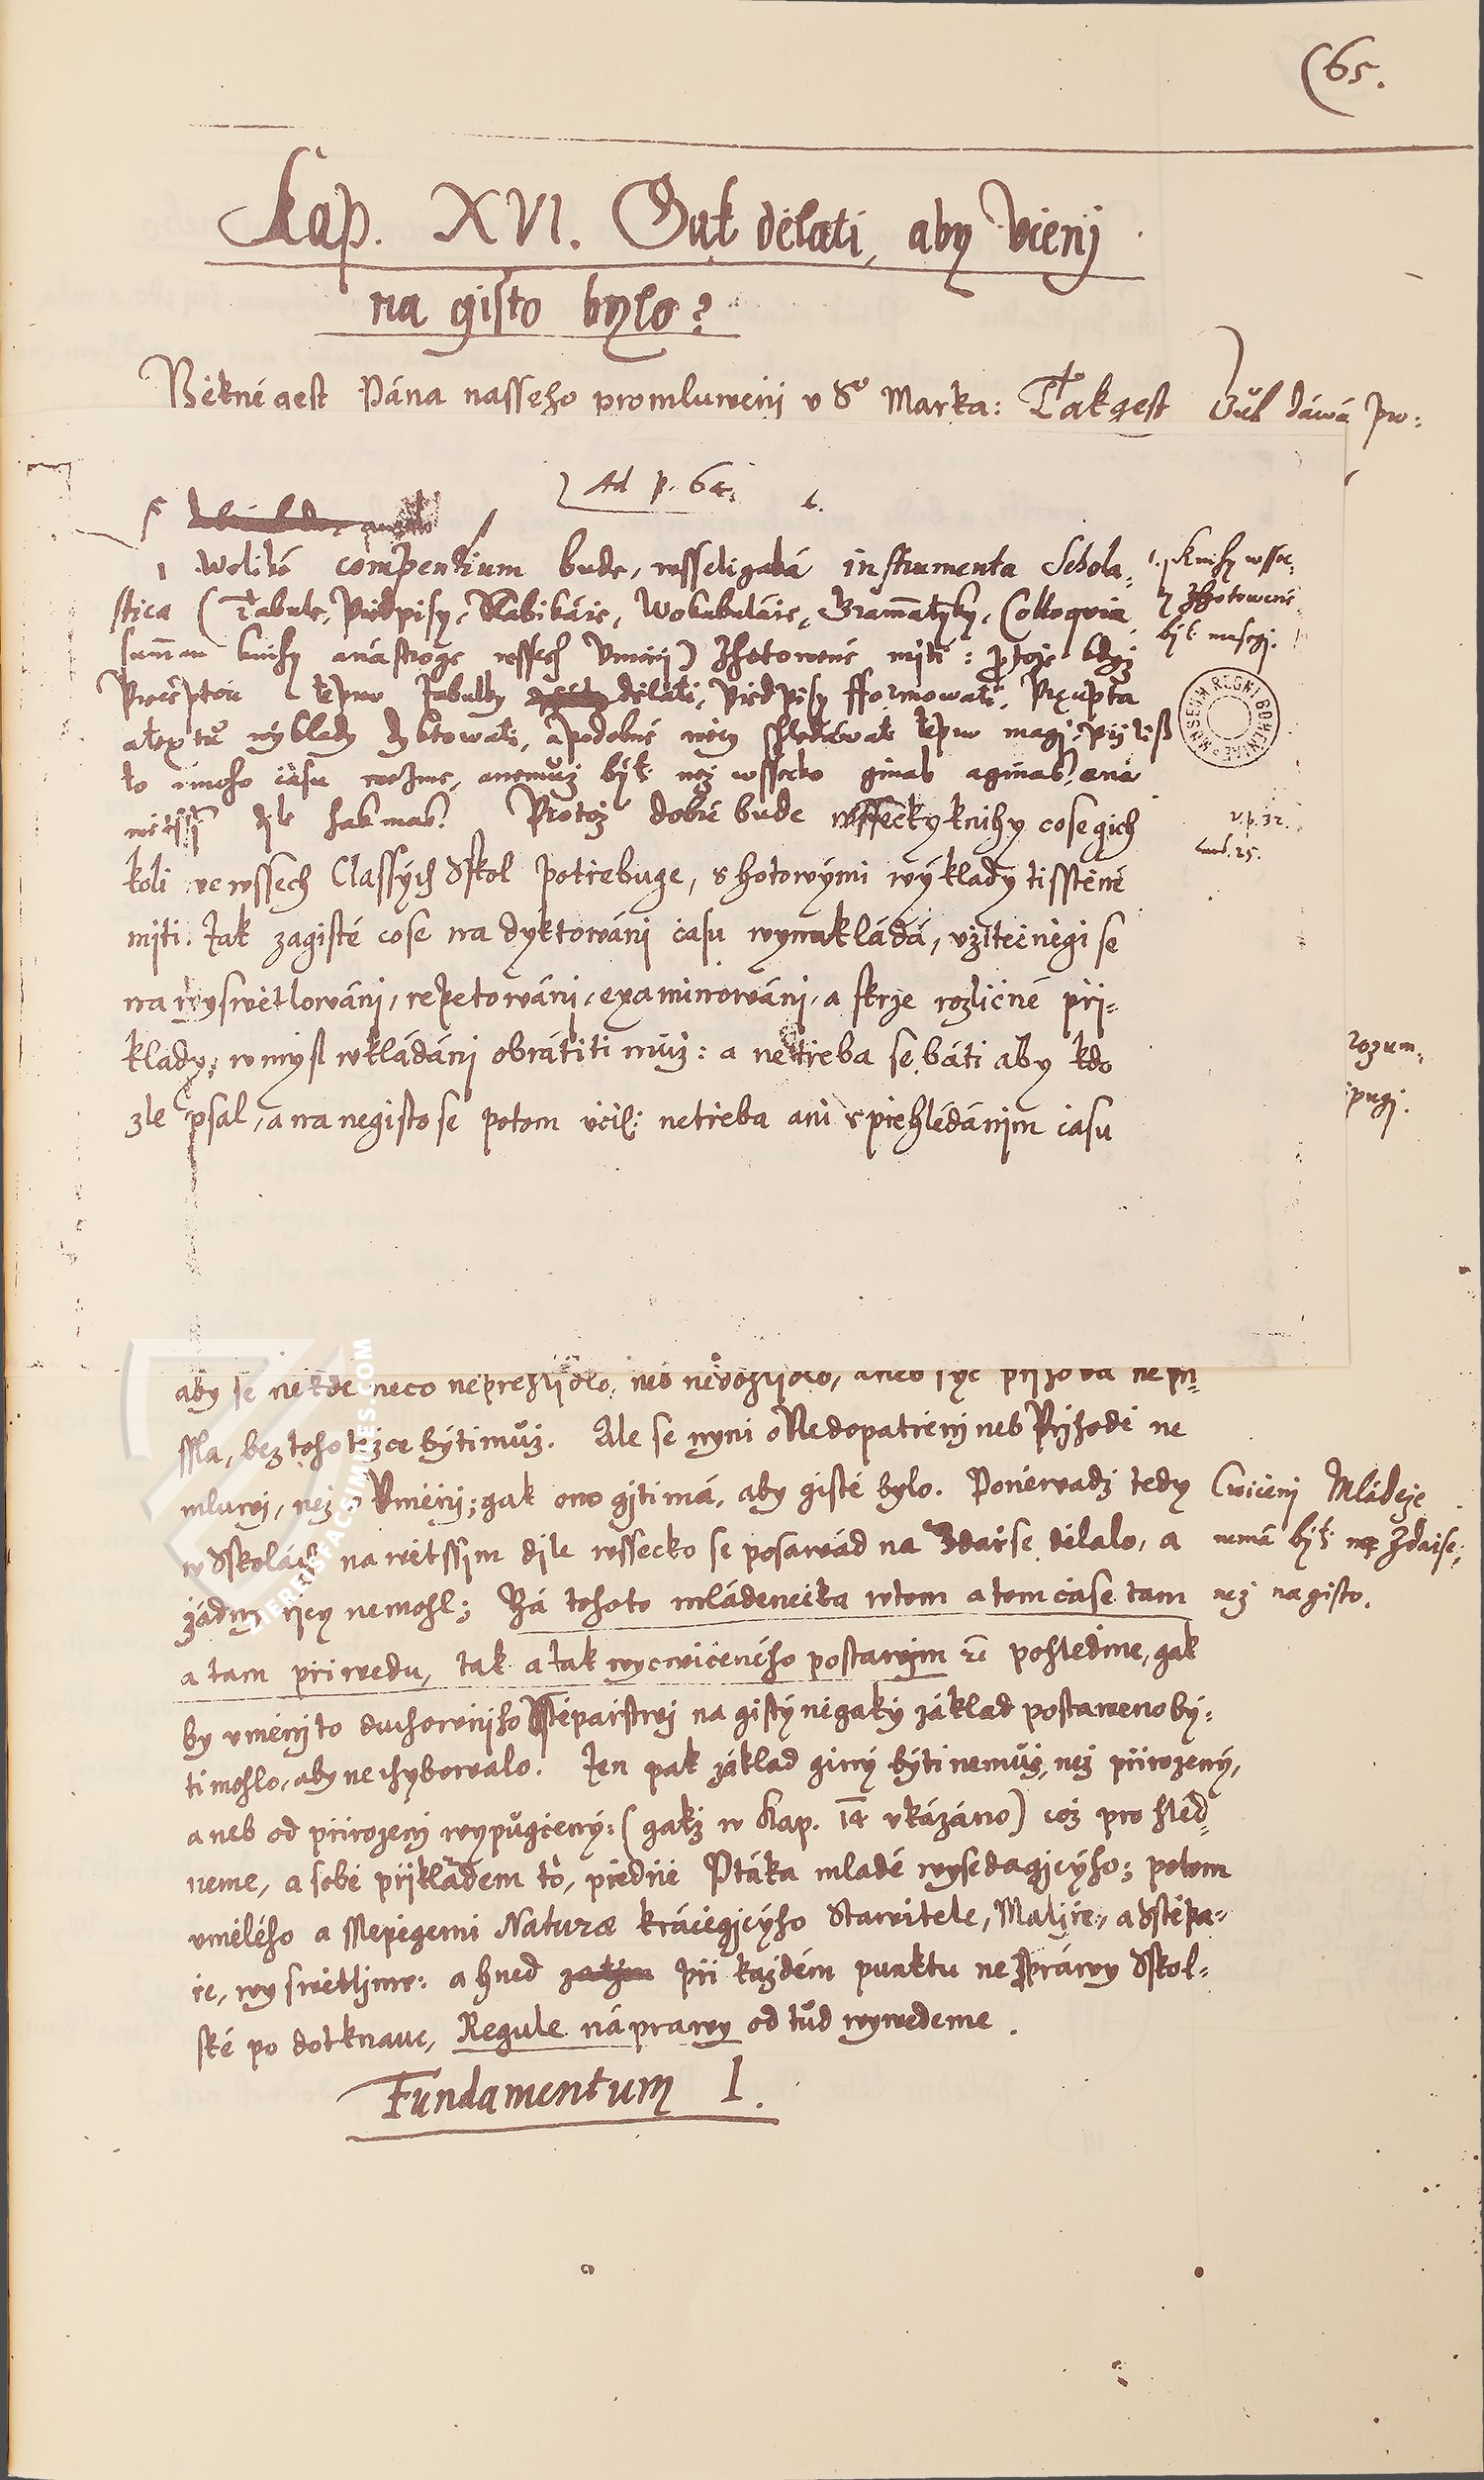 (65.
Kap. XVI. Gak dělati, aby včenj
na gisto bylo?
Pěkné gest Pána nasseho promluwenj v Sº Marka: Takgest Bůh dáwá pro:
Ad p. 64.
1 Weliké compendium bude, wsseligaká instrumenta Schola-
stica (Tabule, Předpisy, Slabikáře, Wokabuláře, Grammatyky, Colloquia,
summau knihy anástroge wssech Vměnj) zhotowené mjti: protože když
Præceptoři teprw tabulky dělati, Předpisy fformowati, Præcepta
a wýklady dyktowati, apodobné wěcy shledáwati teprw magj,
to mnoho času wezme, anemůž býti než wssecko ginak aginak, ana
wětssjm djle Protož dobré bude wssecky knihy cosegich
koli ve wssech Classých Sskol potřebuge, s hotowými wýklady tisstěné
mjti. Tak zagisté cose na dyktowánj času wynakládá, vžitečněgi se
na wyswětlowánj, repetowánj, examinowánj, a skrze rozličné při-
klady, w mysl wkládánj obrátiti můž: a netřeba se báti aby kdo
zle psal, a na negisto se potom včil: netřeba ani s přehlédánjm času
1. Knihy wsse-
zhotowené
býti magj.
v. p. 32.
cand. 25.
MUSEUM REGNI BOHEMIAE
rozum,
pugj.
aby se někde něco nepřehljdlo, neb newohljdlo, aneb
ssla, bez toho těžce býti můž. Ale se nynj o Nedopatřenj neb Přjhodě ne
mluwj, než o Vměnj; gak ono gjti má, aby gisté bylo. Poněwadž tedy
w Sskolách na wětssjm djle wssecko se posawád na Zdařse dělalo, a
žádný řjcy nemohl; Já tohoto mládenečka wtom atom čase tam
a tam přiwedu, tak atak wycwičeného postawjm pohleďme, gak
by vměnj to duchownjho Sstěpařstwj na gistý něgaký základ postaweno by:
ti mohlo, aby nechybowalo. Ten pak základ giný býti nemůž, než přirozený,
aneb od přirozenj wypůgčený: (gakž w Kap. 14 vkázáno) což prohléd-
neme, a sobě přjkladem to, předně Ptáka mladé wysedagjcýho; potom
vmělého a sslepěgemi Naturæ kráčegjcýho Stawitele, Maljře, a Sstěpa-
ře, wyswětljme: a hned při každém punktu nespráwy Sskol-
ské podotknauc, Regule náprawy odtůd wywedeme.
Cwičenj Mládeže
nemá býti na Zdařse,
než na gisto.
Fundamentum I.
HEREUSFACSIMILES.COM